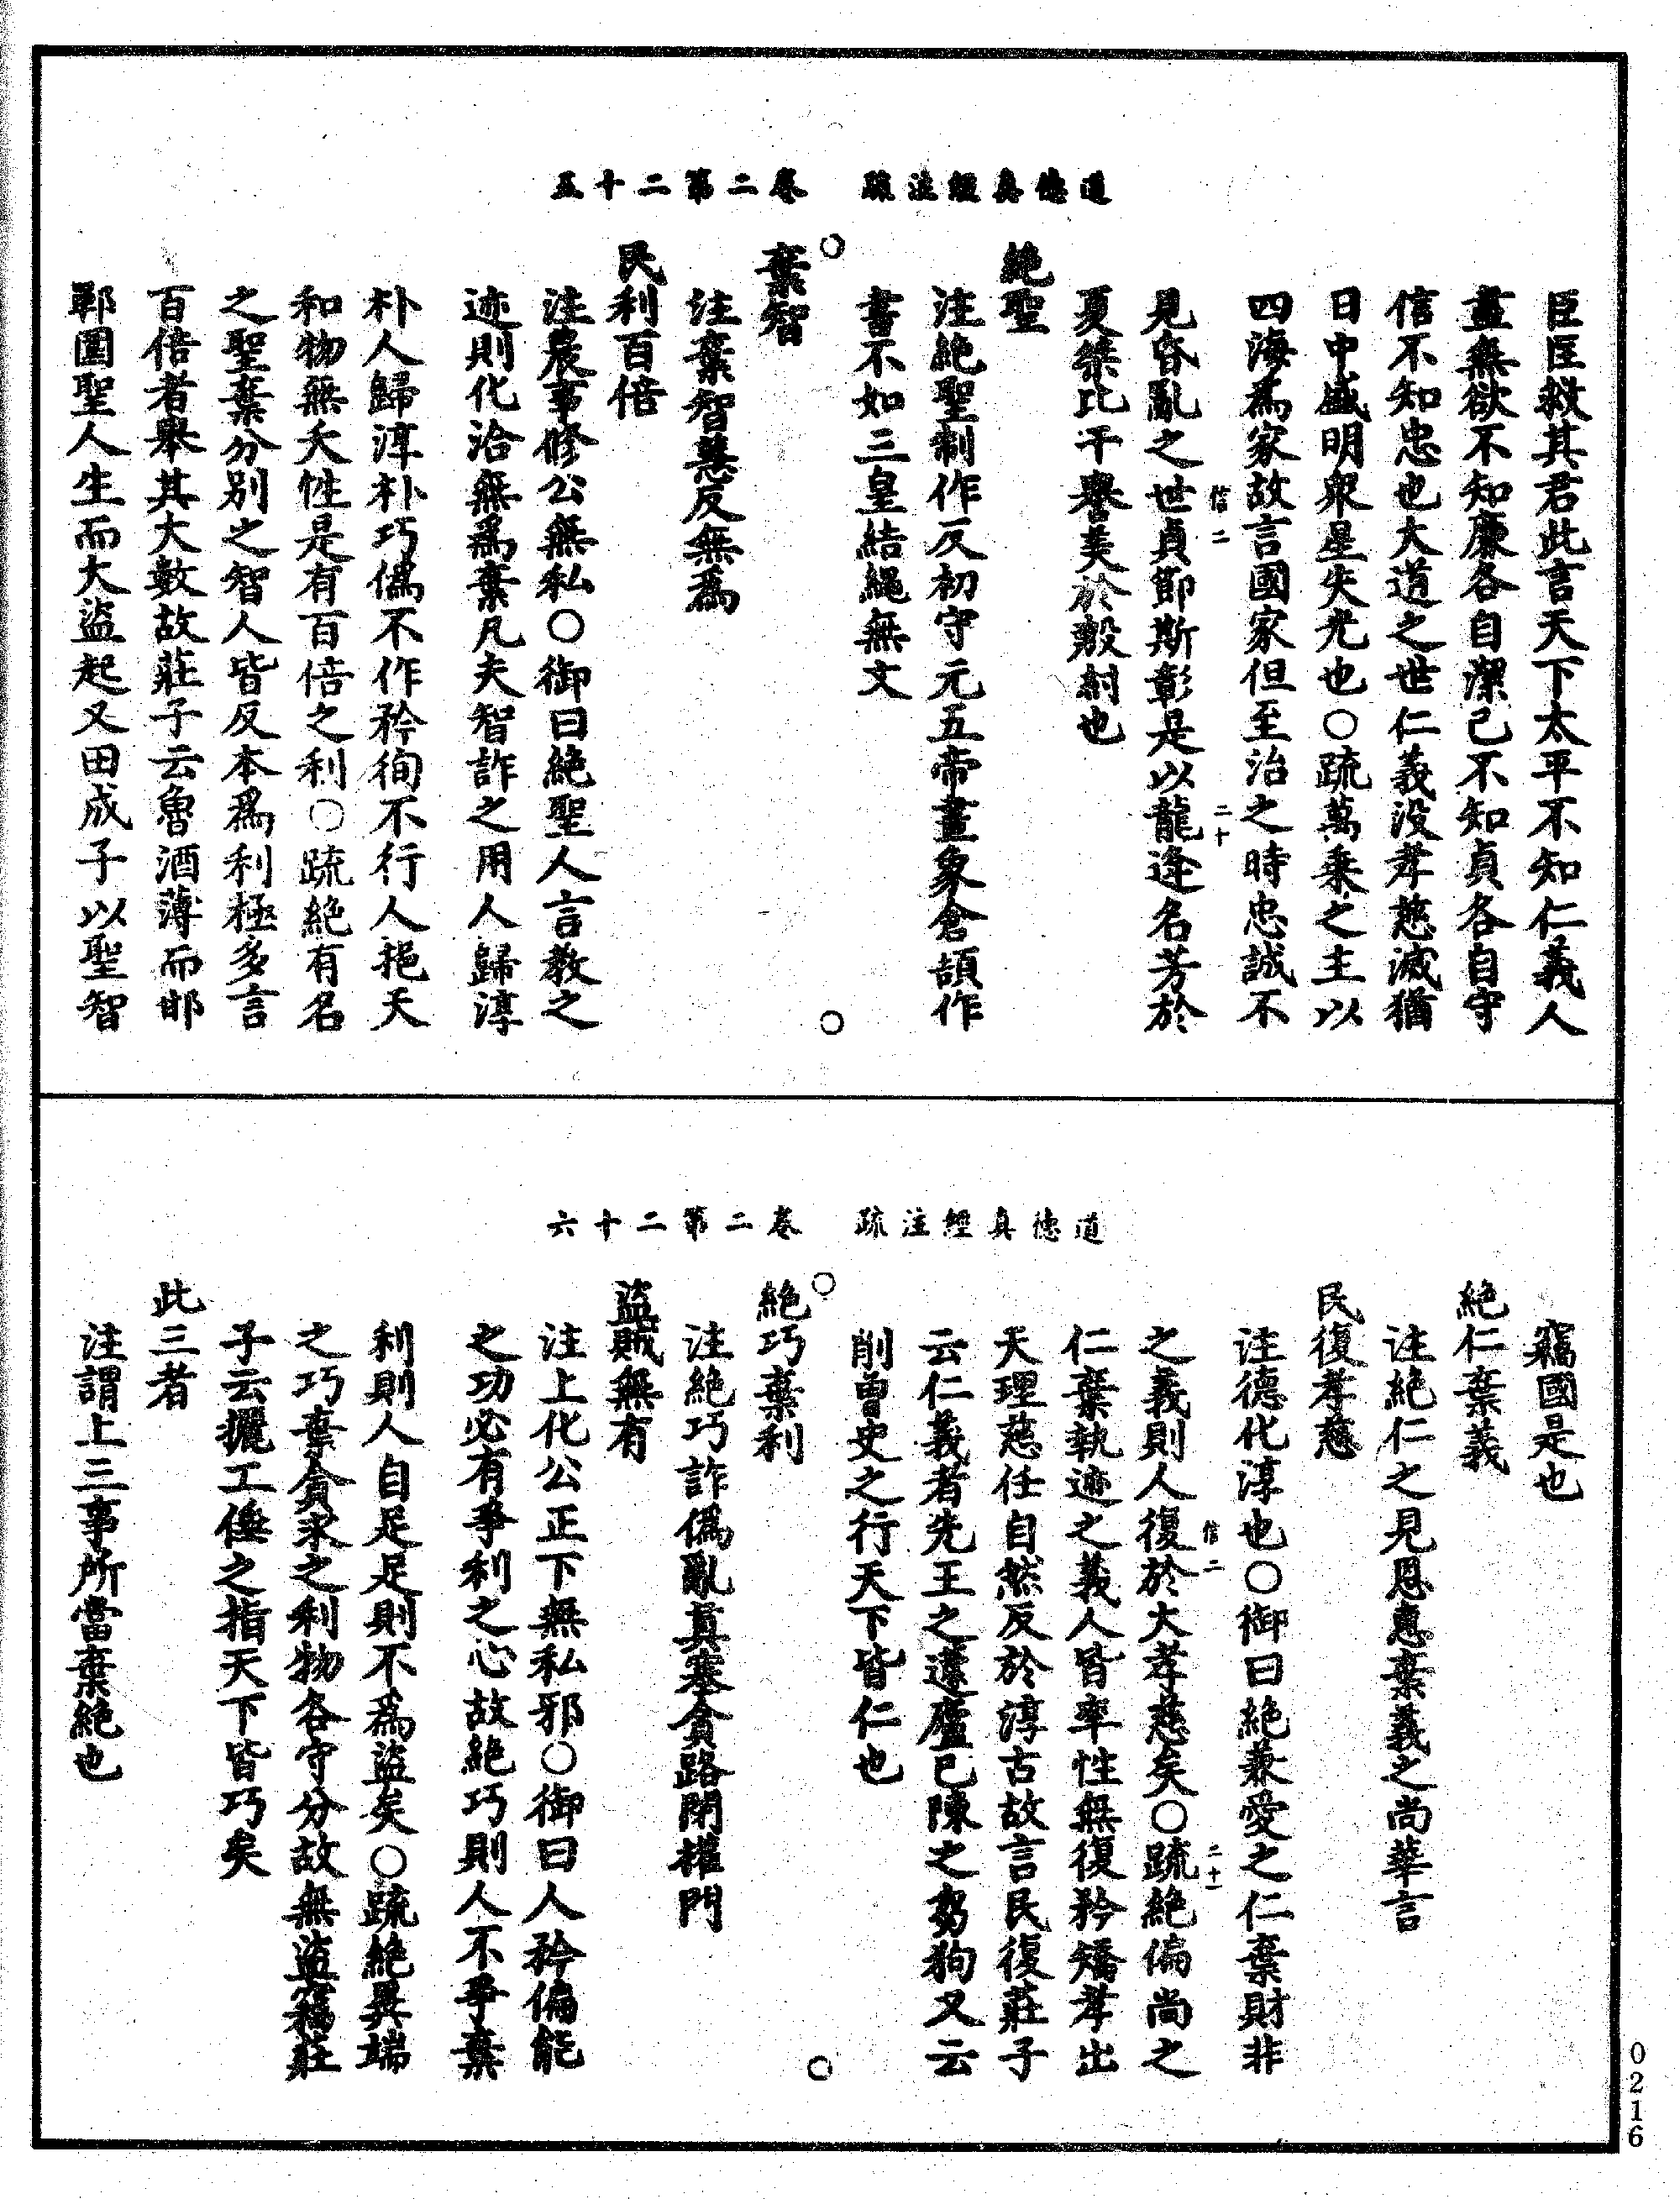 道德真經注疏　卷二第二十五
臣匡救其君此言天下太平不知仁義人
盡無欲不知廉各自潔己不知貞各自守
信不知忠也大道之世仁義没孝慈滅猶
日中盛明衆星失光也○疏萬乗之主以
四海爲家故言國家但至治之時忠誠不
信二　二十
見昏亂之世貞節斯彰是以龍逄名芳於
夏桀比干譽美於殷紂也
絶聖
注絶聖制作反初守元五帝畫象倉頡作
書不如三皇結繩無文
棄智
注棄智慧反無爲
民利百倍
注農事修公無私○御曰絶聖人言教之
迹則化洽無爲棄凡夫智詐之用人歸淳
朴人歸淳朴巧僞不作矜徇不行人抱天
和物無夭性是有百倍之利○疏絶有名
之聖棄分别之智人皆反本爲利極多言
百倍者舉其大數故莊子云魯酒薄而邯
鄲圍聖人生而大盗起又田成子以聖智
道德真經注疏　卷二第二十六
竊國是也
絶仁棄義
注絶仁之見恩惠棄義之尚華言
民復孝慈
注德化淳也○御曰絶兼愛之仁棄財非
信二　二十一
之義則人復於大孝慈矣○疏絶偏尚之
仁棄執迹之義人皆率性無復矜矯孝出
天理慈任自然反於淳古故言民復莊子
云仁義者先王之蘧廬已陳之芻狗又云
削曾史之行天下皆仁也
絶巧棄利
注絶巧詐僞亂真塞貪路閉權門
盗賊無有
注上化公正下無私邪○御曰人矜偏能
之功必有爭利之心故絶巧則人不爭棄
利則人自足足則不爲盗矣○疏絶異端
之巧棄貪求之利物各守分故無盗竊莊
子云攦工倕之指天下皆巧矣
此三者
注謂上三事所當棄絶也
0216